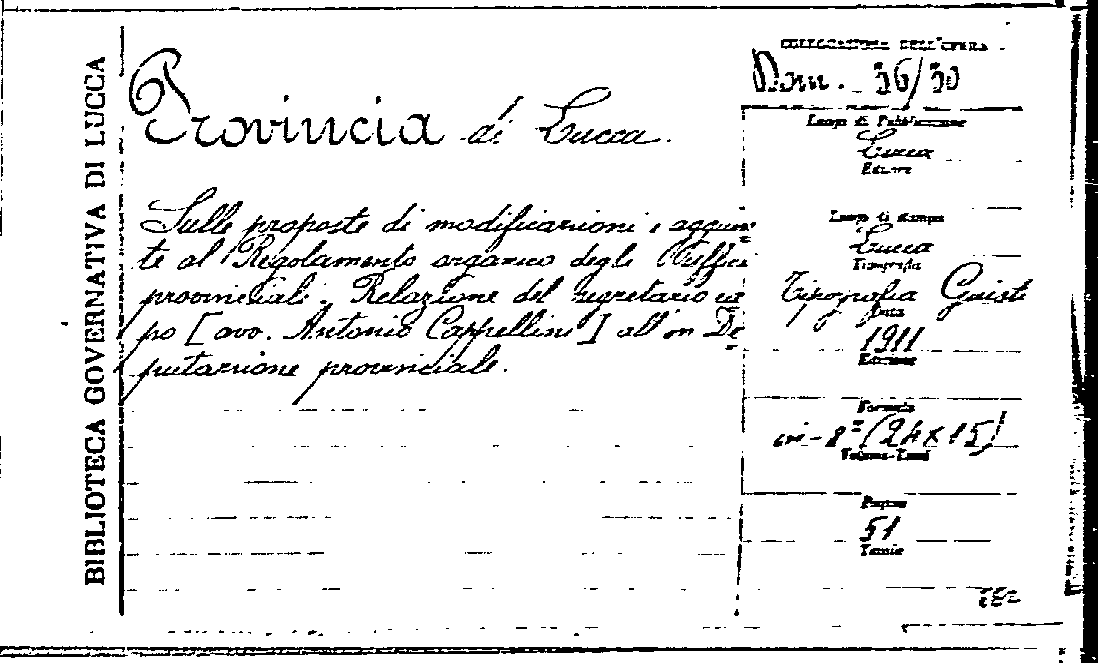 BIBLIOTECA GOVERNATIVA DI LUCCA
Provincia di Lucca.
Sulle proposte di modificazioni e aggiun=
te al Regolamento organico degli Uffici
provinciali. Relazione del segretario ca
po [avv. Antonio Cappellini] all'on De
putazione provinciale.
COLLOCAZIONE DELL'OPERA
36/30
Luogo di Pubblicazione
Lucca
Editore
Luogo di stampa
Lucca
Tipografia
Tipografia Giusti
Data
1911
Edizione
Formato
in-8° (24x15)
Volume-Tomi
Pagine
51
Tavole